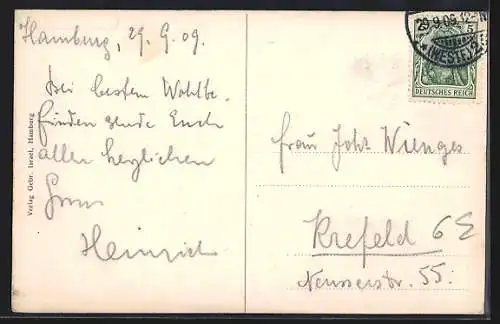 Hamburg, 29.9.09.
Bei bestem Wohlbe-
finden sende Euch
allen herzlichen
Gruss
Heinrich
Verlag Gebr. Israel, Hamburg
29.9.09. 12-
(WESTF.) 2
5
DEUTSCHES REICH
Frau Joh. Wienges
Krefeld
Neusserstr. 55.